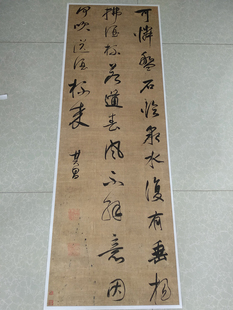 可怜盤石臨泉水復有垂楊
拂酒杯若道春風不解意因
何吹送酒杯来
其昌